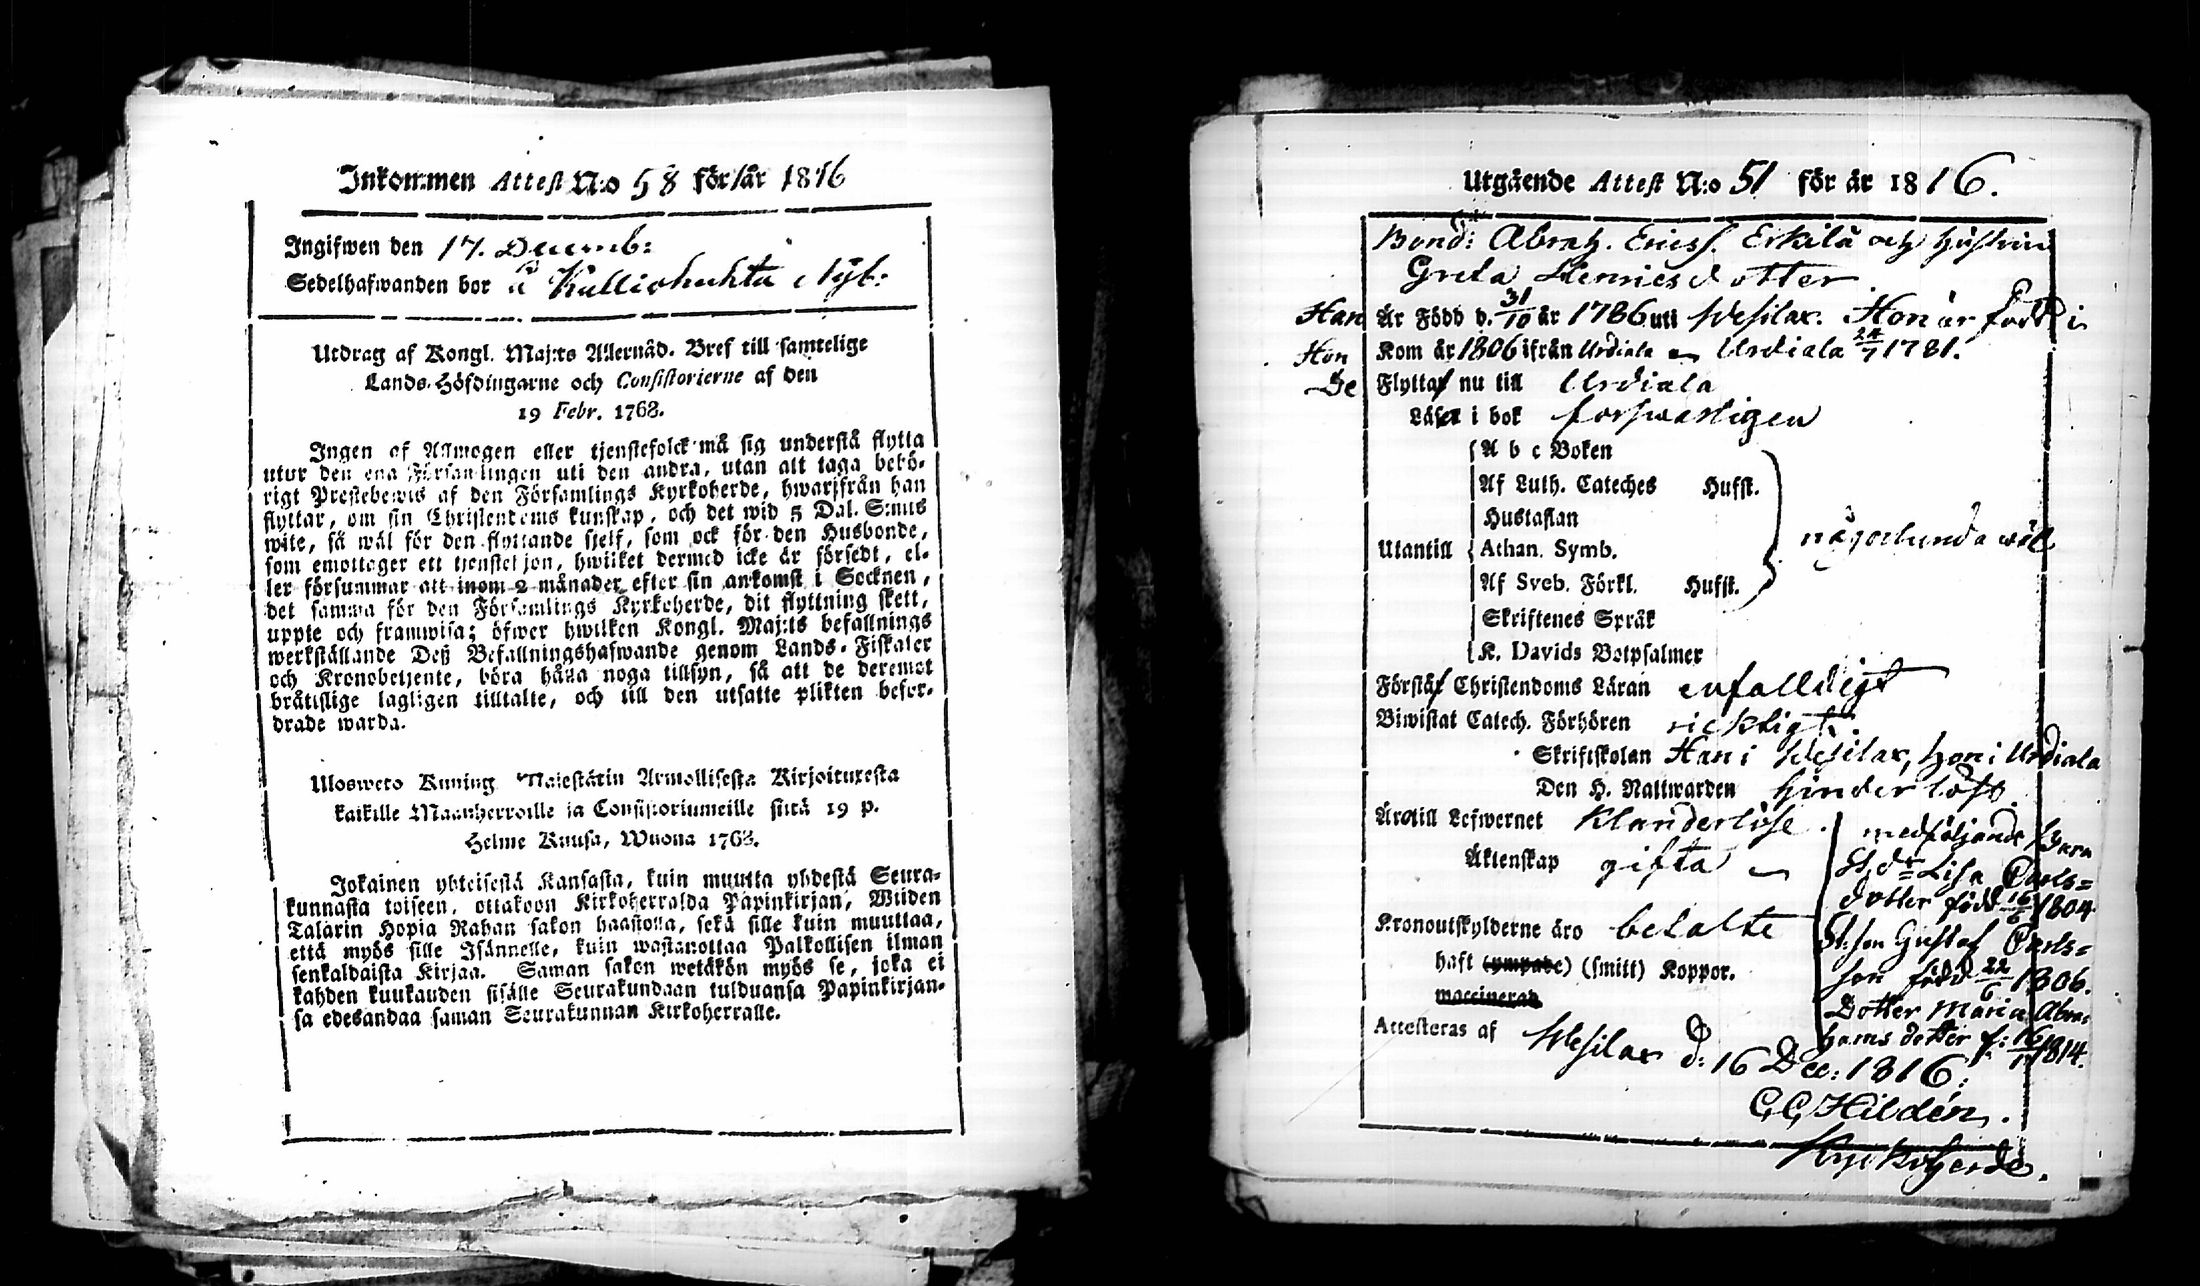 Inkommen Attest N:o 58 för år 1816
Ingifwen den 17. Decemb:
Sedelhafwanden bor å Kulliohuhta Nyb:
Utdrag af Kongl. Maj:ts Allernåd. Bref till samtelige
Lands-Höfdingarne och Consistorierne af den
19 Febr. 1763.
Ingen af Allmogen eller tjenstefolck må sig understå flytta
utur den ena Församlingen uti den andra, utan att taga behö-
rigt Prestebewis af den Församlings Kyrkoherde, hwarifrån han
flyttar, om sin Christendoms kunskap, och det wid 5 Dal. S:mts
wite, så wäl för den flyttande sjelf, som ock för den Husbonde,
som emottager ett tjenstehjon, hwilket dermed icke är försedt, el-
ler försummar att inom 2 månader efter sin ankomst i Socknen,
det samma för den Församlings Kyrkoherde, dit flyttning skett,
uppte och framwisa; öfwer hwilken Kongl. Maj:ts befallnings
werkställande Deß Befallningshafwande genom Lands-Fiskaler
och Kronobetjente, böra hålla noga tillsyn, så att de deremot
bråttslige lagligen tilltalte, och till den utsatte plikten befor-
drade warda.
Ulosweto Kuning. Majestätin Armollisesta Kirjoituxesta
kaikille Maanherroille ja Consistoriumeille siitä 19 p.
Helme Kuusa, Wuona 1763.
Jokainen yhteisestä Kansasta, kuin muutta yhdestä Seura-
kunnasta toiseen, ottakoon Kirkoherralda Papinkirjan, Wiiden
Talarin Hopia Rahan sakon haastolla, sekä sille kuin muuttaa,
että myös sille Isännelle, kuin wastanottaa Palkollisen ilman
senkaldaista Kirjaa. Saman sakon wetäkön myös se, joka ei
kahden kuukauden sisälle Seurakundaan tulduansa Papinkirjan-
sa edesandaa saman Seurakunnan Kirkoherralle.
Utgående Attest N:o 51 för år 1816.
Bond: Abrah. Ericss. Erkilä och hustrun
Greta Henricsdotter
Han Är Född d. 31/10 år 1786 uti Wesilax. Hon är född i
Hon Kom år 1806 ifrån Urdiala Urdiala 24/7 1781.
De Flytta nu till Urdiala
Läsa i bok forswarligen
A b c Boken
Af Luth. Cateches Hufst.
Hustaflan
Utantill Athan. Symb. någorlunda wäl
Af Sveb. Förkl. Hufst.
Skriftenes Språk
K. Davids Botpsalmer
Förstå Christendoms Läran enfalldigt
Biwistat Catech. Förhören ricktigt
Skriftskolan Han i Wesilax, hon i Urdiala
Den H. Nattwarden hinderlöst
Äro till Lefwernet Klanderlöse.
Äktenskap gifta
medföljande barn
St. dr Lisa Carls=
dotter född 16/6 1804
St: son Gustaf Carls=
son född 22/6 1806.
Dotter Maria Abra=
hams dotter f: 16/1 1814.
Kronoutskylderne äro betalte
haft (ympade) (smitt) Koppor.
waccinerad
Attesteras af Wesilax d: 16 Dec: 1816:
G G Hildén.
Kyrkoherde.